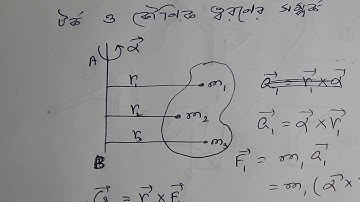 টর্ক ও কৌনিক ত্বরনের সম্পর্ক
A α⃗
r₁ m₁
r₂ m₂
r₃ m₃
B
a⃗₁ = r⃗₁ × α⃗
a⃗₁ = α⃗ × r⃗₁
F⃗₁ = m₁ a⃗₁
= m₁ (α⃗ ×
= r⃗ × F⃗₁